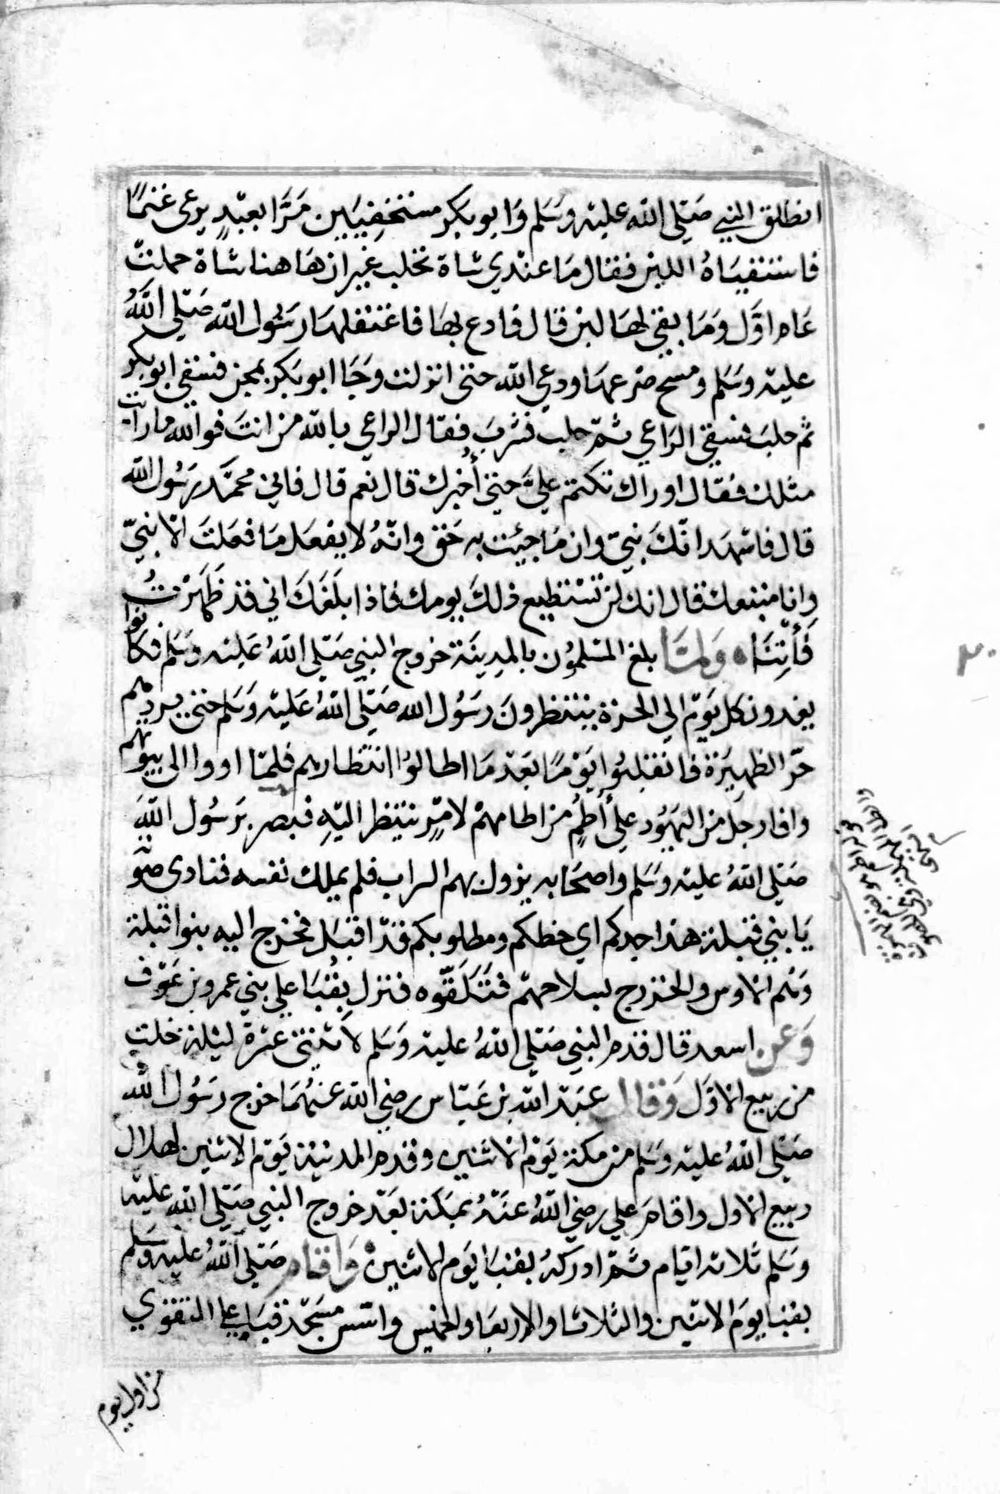 انطلق النبي صَلّى الله عليْه وسَلم وَابو بكر مستخفِيَين مَرَّا بعبْدٍ يرعى غنمًا
فاستسقيَاهُ اللبن فقال مَا عنْدي شاة تحلب غير ان هَاهنا شاة حملت
عَام اوّل وَمَا بقي لهَا لبن قال فادع بهَا فاعتقلهَا رسُول الله صَلى اللهُ
عليْه وسَلم ومسح ضرعهَا ودعى الله حتى انزلت وجَا ابو بكر بمجن فسقى ابو بكر
ثم حلبَ فسقى الرّاعي ثمّ حلب فشربَ فقال الراعي بالله من انتَ فوالله ما رأيت
مثلك فقال اوراك تكتم عليّ حتى أخبرك قال نعم قال فاني محمّد رسُول الله
قال فاشهَد انّكَ نبيّ وان مَا جيئت به حَق وانهُ لا يفعل مَا فعلتَ الا نبيّ
وانا متبعك قال انك لن تسْتطيع ذلكَ يومك فاذا بلغكَ اني قد ظهَرْتُ
فَأتِنَا ه وَلمَّا بلغ المسْلموُن بالمدِينَة خروج النبي صَلى اللهُ عَليْه وسَلم فكانوا
يغدون كل يَوْم الى الحرة ينتظرونَ رَسُول الله صَلى اللهُ عَليْه وَسَلم حتى يردهم
حرّ الظهيرَة فانقلبُوا يَوْمًا بعَدْ مَا اطالوُا انتظارهم فلمّا اووا الى بيوتهم
وافا رجل من اليهَوُد على أطُم من اطامهمْ لامْرٍ ينتظر اليْهِ فبصر برَسُول اللّهَ
صَلى اللهُ عليْه وسَلم واصحَابه يزول بهم السراب فلم يملك نفسه فنادى صوته
يَا بني قيلة هذا جدكم اي حظكم ومطلوبكم قدْ اقبَل فخرج اليه بنوا قيلة
وَهُم الاوس والخزرج لبسلاحهمْ فتَلَقّوْه فنزل بقُبَا على بني عمرو بن عَوْف
وَعن اسعد قال قدم النبي صَلى اللهُ عليْه وَسَلم لاثنتى عشرة ليْلة خلت
من ربيع الاوّل وَقال عبْد الله بن عَبّاس رضي الله عنهُمَا خرج رسُول الله
صَلى اللهُ عليْه وسَلم من مكة يَوْم الاثنين وقدم المدينَة يَوْم الاثنين لهلال
ربيع الاول واقامَ علي رضي اللهُ عنْهُ بمكة بَعْد خروج النبي صَلى اللهُ عليْه
وسَلم ثلاثة ايام ثمّ ادركهُ بقبَا يَوم الاثنين ه وَاقام صَلى اللهُ عليْه وسَلم
بقبَا يومَ الاثنين والثلاثا والاربعَا والخميس واسّس مسجّد قبَا على التقوي
من اول يوم
٢٠